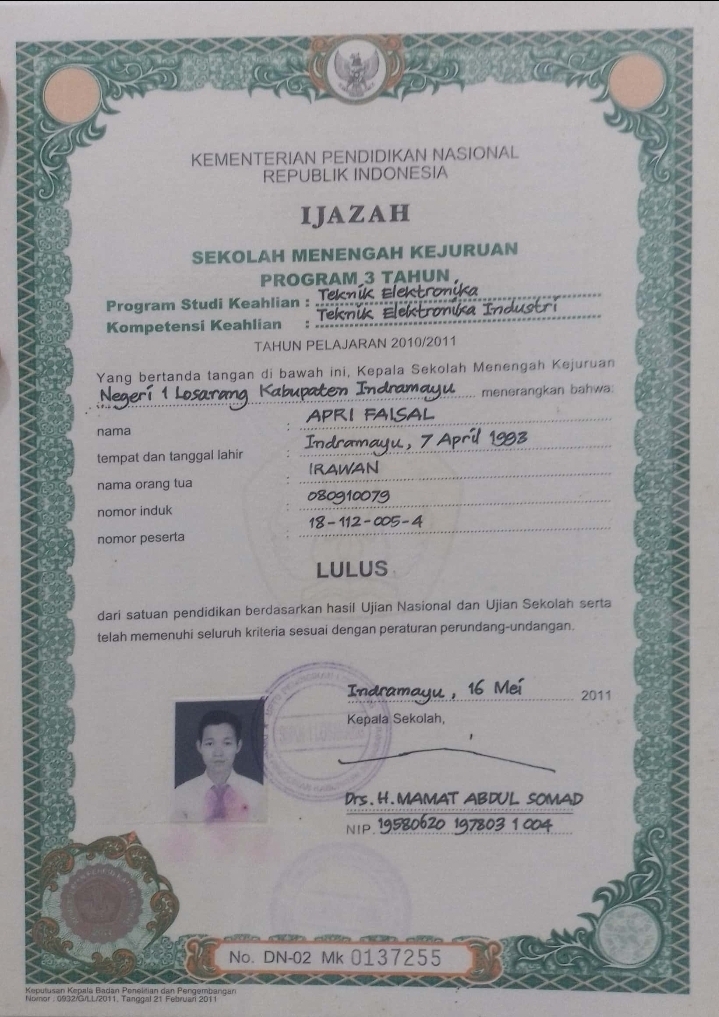 KEMENTERIAN PENDIDIKAN NASIONAL
REPUBLIK INDONESIA
IJAZAH
SEKOLAH MENENGAH KEJURUAN
PROGRAM 3 TAHUN
Program Studi Keahlian : Teknik Elektronika
Kompetensi Keahlian : Teknik Elektronika Industri
TAHUN PELAJARAN 2010/2011
Yang bertanda tangan di bawah ini, Kepala Sekolah Menengah Kejuruan
Negeri 1 Losarang Kabupaten Indramayu menerangkan bahwa:
nama : APRI FAISAL
tempat dan tanggal lahir : Indramayu, 7 April 1993
nama orang tua : IRAWAN
nomor induk : 080910079
nomor peserta : 18-112-005-4
LULUS
dari satuan pendidikan berdasarkan hasil Ujian Nasional dan Ujian Sekolah serta
telah memenuhi seluruh kriteria sesuai dengan peraturan perundang-undangan.
Indramayu, 16 Mei 2011
Kepala Sekolah,
Drs. H. MAMAT ABDUL SOMAD
NIP. 19580620 197803 1 004
No. DN-02 Mk 0137255
Keputusan Kepala Badan Penelitian dan Pengembangan
Nomor : 0932/G/LL/2011, Tanggal 21 Februari 2011